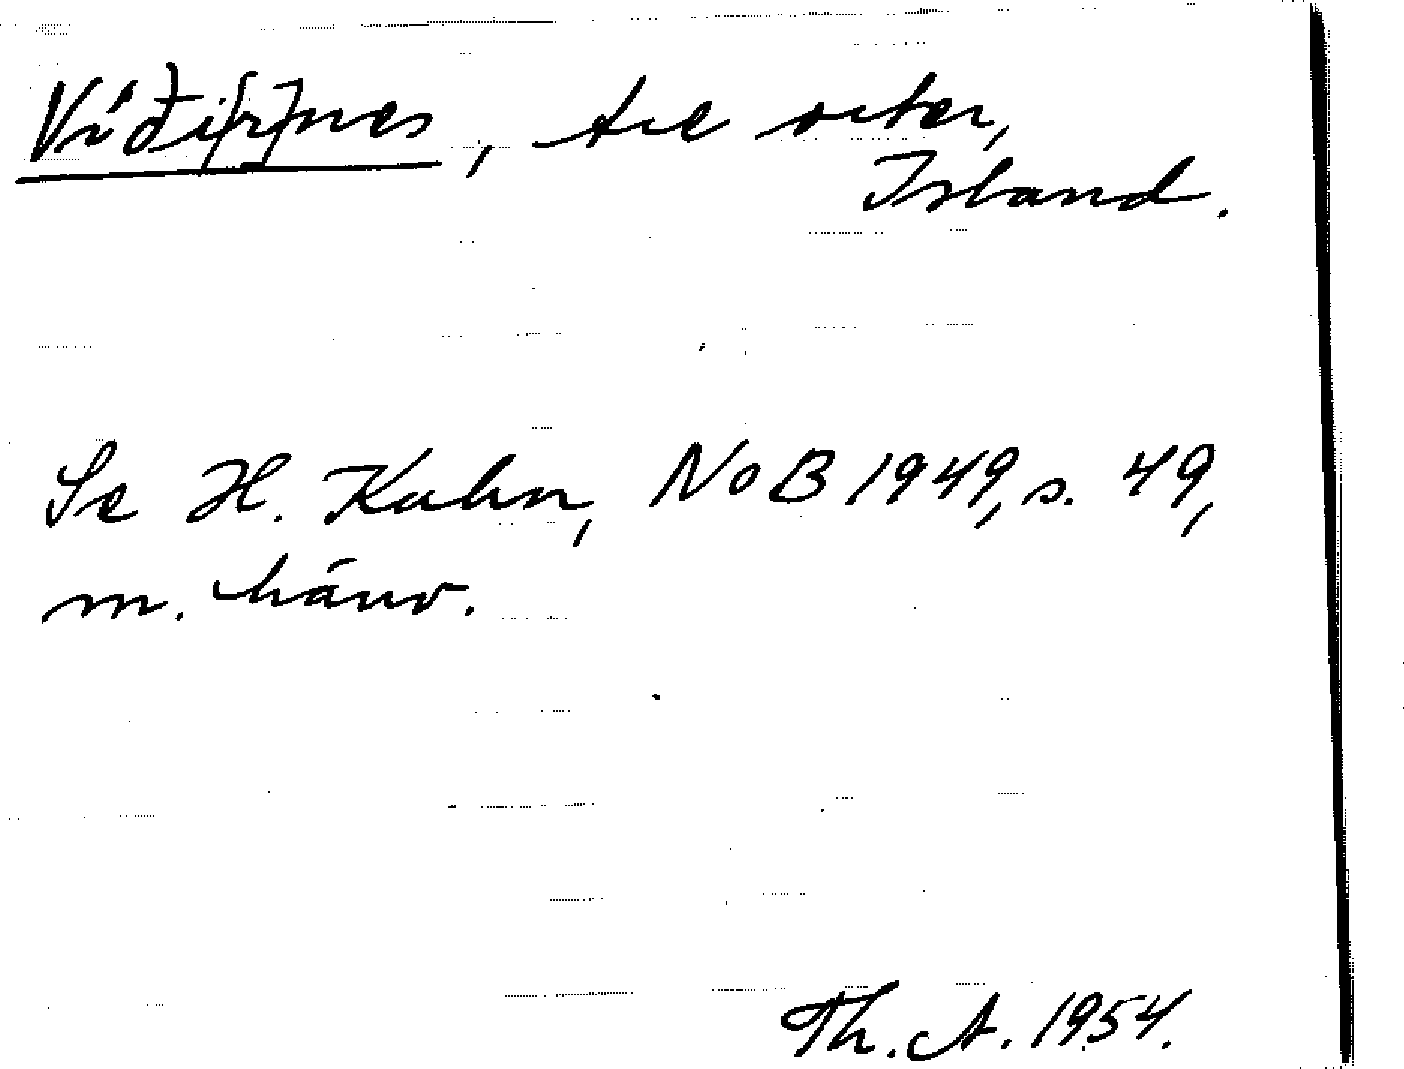 Víði[r]nes, tre orter,
Island.
Se H. Kuhn, NoB 1949, s. 49,
m. hänv.
Th. A. 1954.